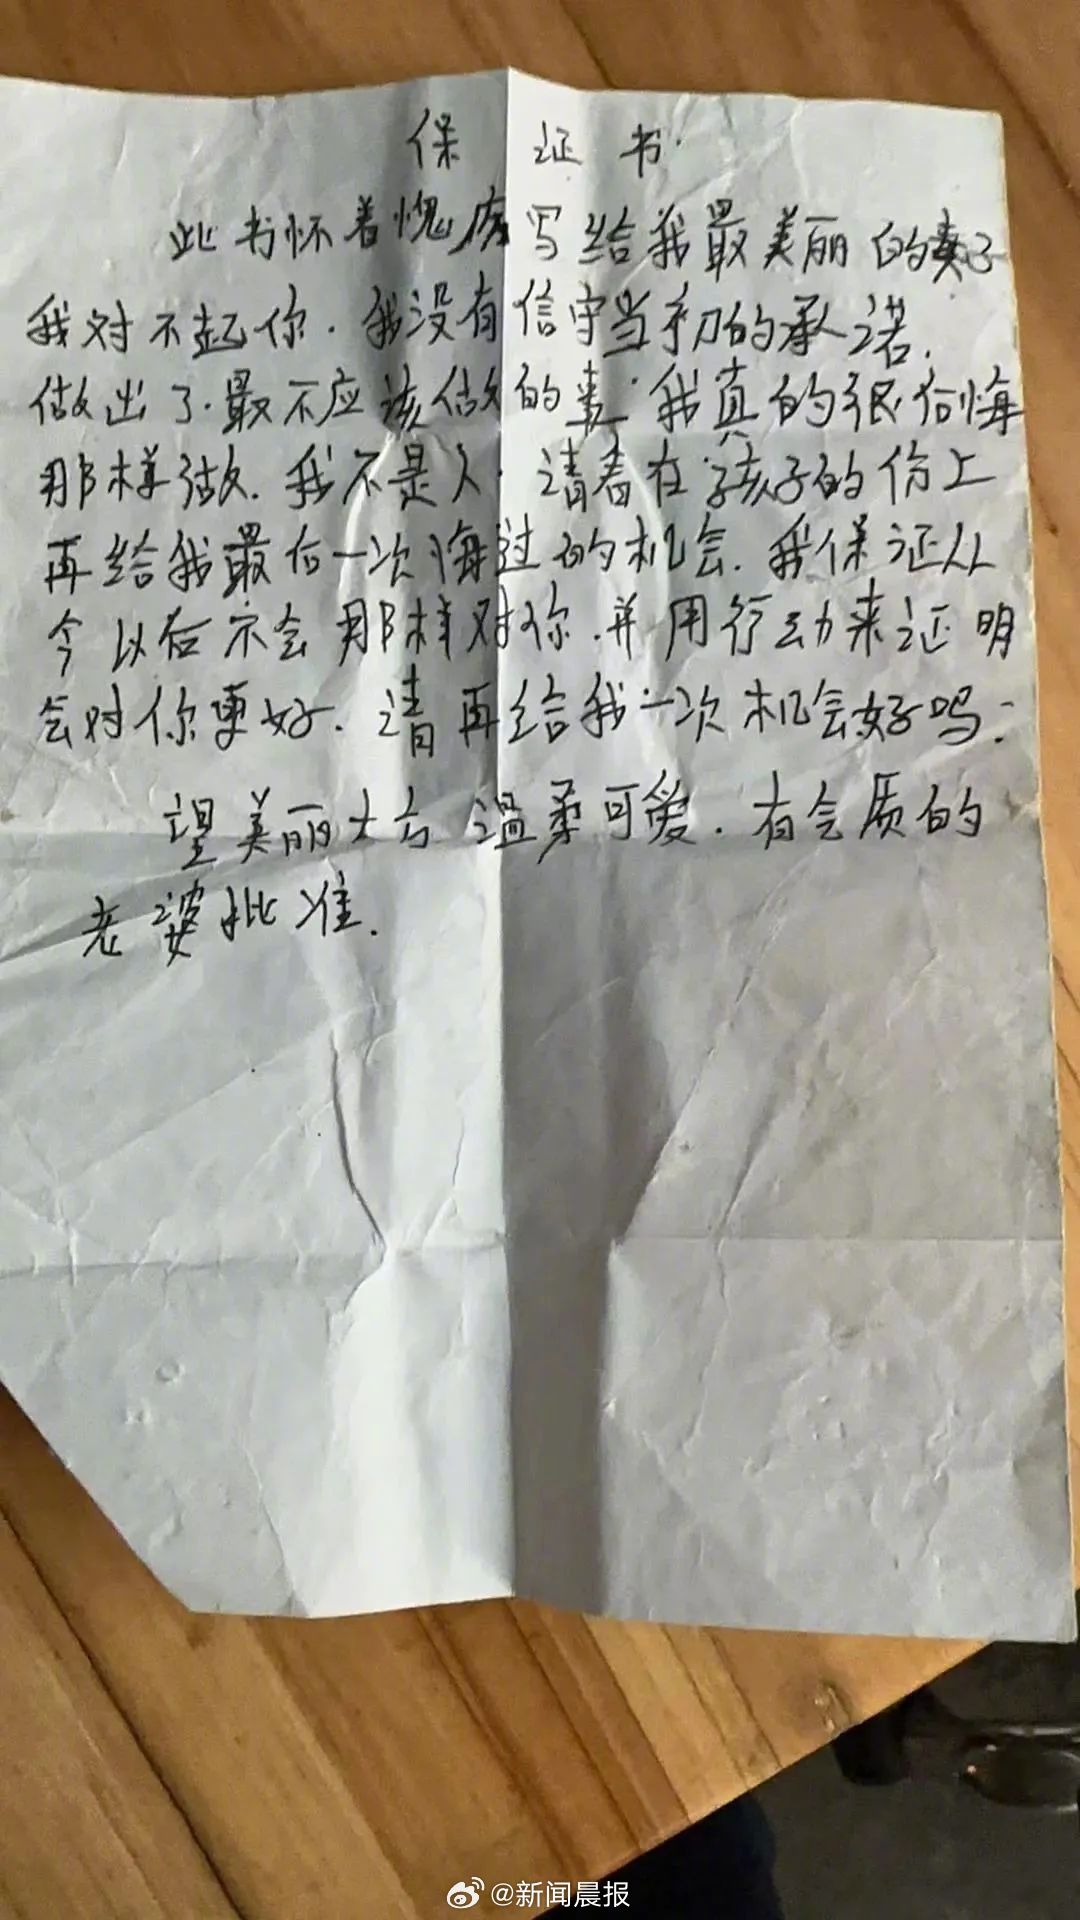 保证书
此书怀着愧疚写给我最美丽的妻子
我对不起你.我没有信守当初的承诺.
做出了.最不应该做的事.我真的很后悔
那样做.我不是人.请看在孩子的份上
再给我最后一次悔过的机会.我保证从
今以后不会那样对你.并用行动来证明
会对你更好.请再给我一次机会好吗:
望美丽大方温柔可爱.有气质的
老婆批准.
@新闻晨报